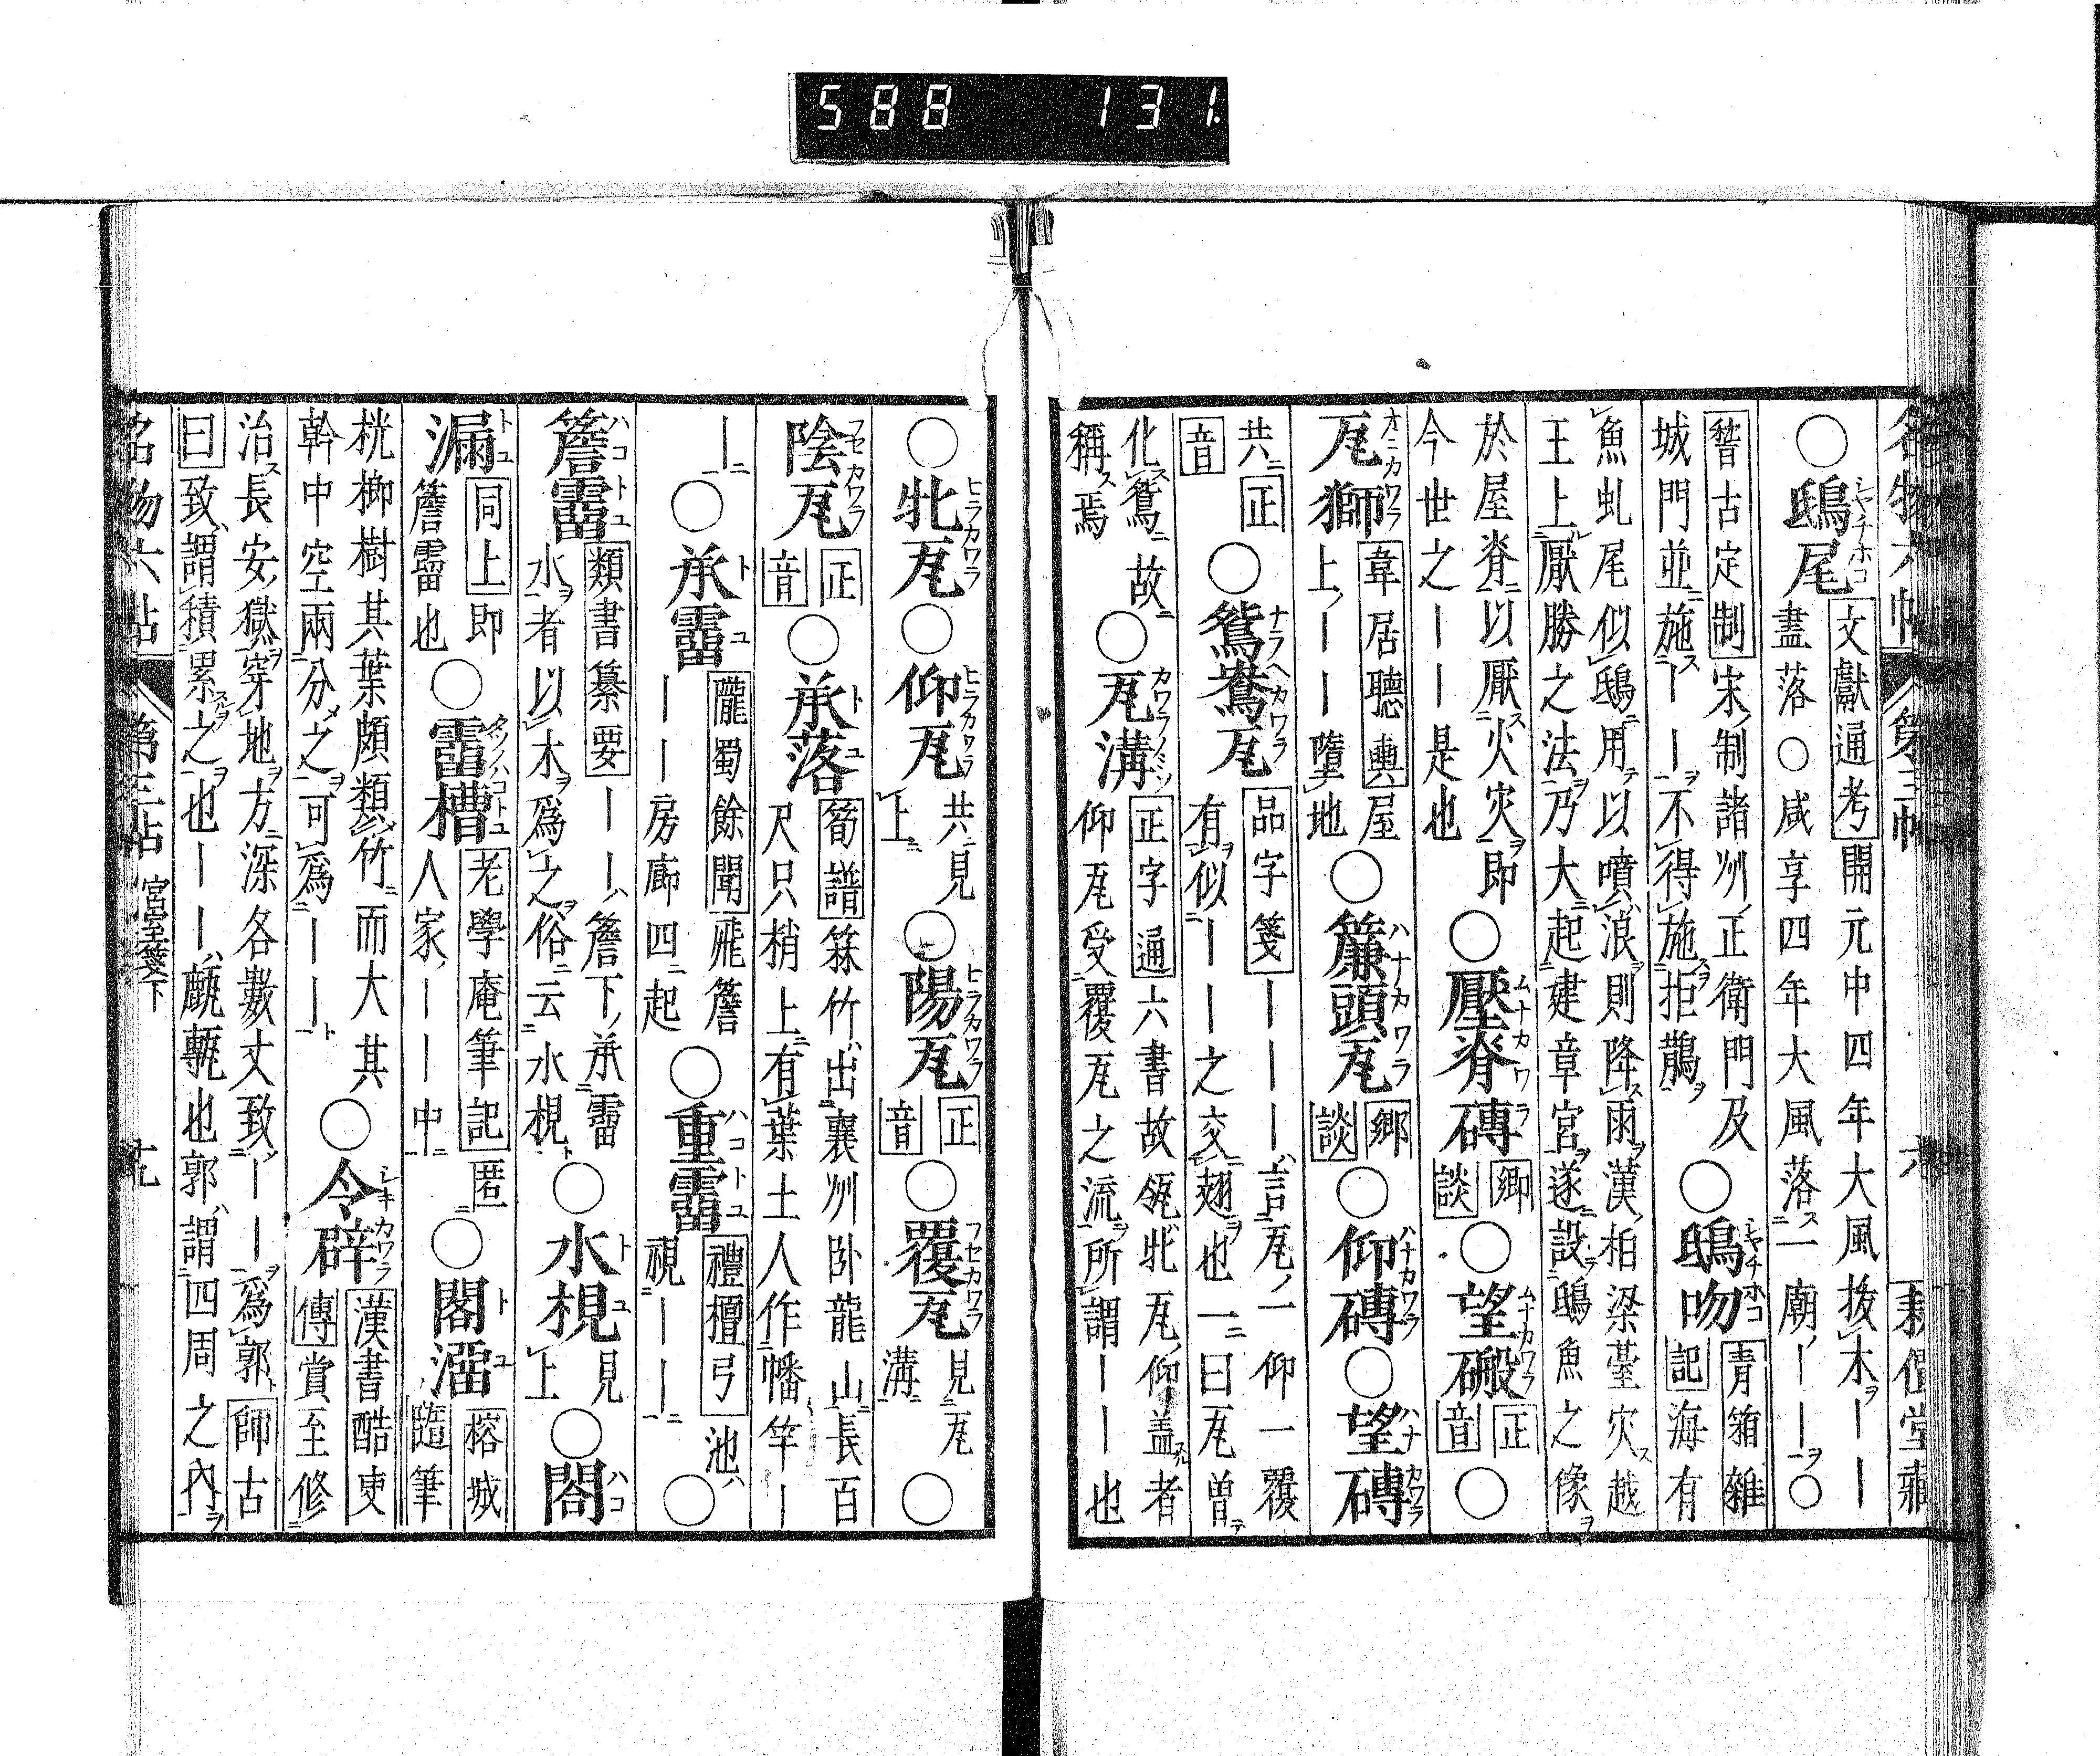 588 131.
名物六帖 第三帖 六
〇鴟尾 文獻通考 開元中四年大風拔木――盡落〇咸享四年大風落一廟――〇
稽古定制 宋制諸州正衙門及城門並施――不得施拒鵲 〇鴟吻 青箱雜記 海有
魚虬尾似鴟用以噴浪則降雨漢柏梁臺灾越王上厭勝之法乃大起建章宮遂設鴟魚之像
於屋脊以厭火灾即今世之――是也 〇壓脊磚 鄉談 〇望磚 正音 〇
瓦獅 韋居聽輿 屋上――墮地 〇簾頭瓦 鄉談 〇仰磚〇望磚
共正音 〇鴛鴦瓦 品字箋 ―――言瓦一仰一覆有似――之交翅也一曰瓦曾
化鴛故稱焉 〇瓦溝 正字通 六書故瓴牝瓦仰蓋者仰瓦受覆瓦之流所謂――也
〇牝瓦〇仰瓦 共見上 〇陽瓦 正音 〇覆瓦 見瓦溝 〇
陰瓦 正音 〇承落 筍譜 箖竹出襄州卧龍山長百尺只梢上有葉土人作幡竿―
― 〇承霤 隴蜀餘聞 飛簷――房廊四起 〇重霤 禮檀弓 池視―― 〇
簷霤 類書纂要 ――簷下承霤水者以木爲之俗云水梘 〇水梘 見上 〇閤
漏 同上 即簷霤也 〇霤槽 老學庵筆記 人家――中 匿 〇閤溜 榕城隨筆
桄榔樹其葉頗類竹而大其幹中空兩分之可爲―― 〇令辟 漢書酷吏傳 賞至修
治長安獄穿地方深各數丈致――爲郭 師古
曰 致謂積累之也――甎也郭謂四周之內
名物六帖 第三帖 宮室箋下 九